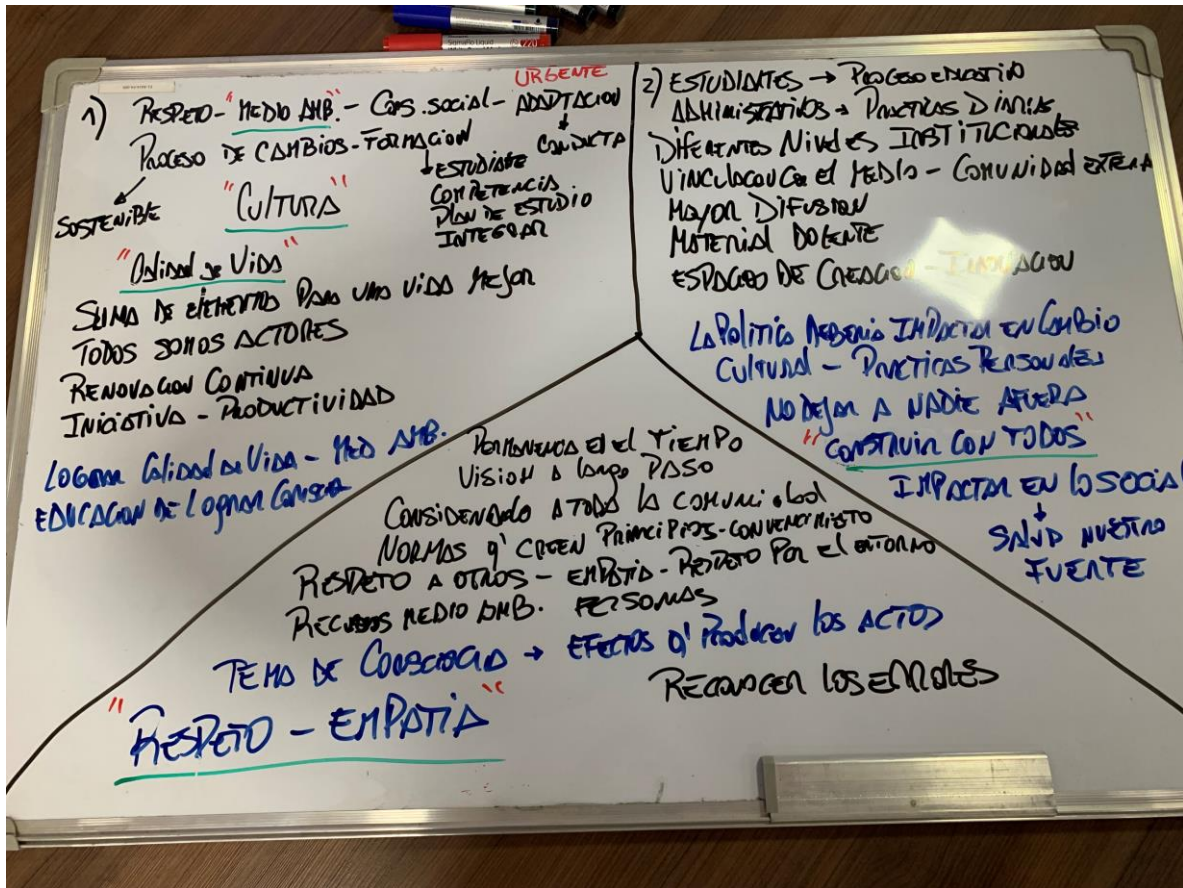 Sigma Pro Liquid
220
1) RESPETO - "MEDIO AMB." - CONS. SOCIAL - ADAPTACION
URGENTE
PROCESO DE CAMBIOS - FORMACION
CONDUCTA
SOSTENIBLE
"CULTURA"
ESTUDIANTE
COMPETENCIA
PLAN DE ESTUDIO
INTEGRAR
"Calidad de Vida"
SUMA DE ELEMENTOS PARA UNA VIDA MEJOR
TODOS SOMOS ACTORES
RENOVACION CONTINUA
INICIATIVA - PRODUCTIVIDAD
LOGRAR Calidad de Vida - MED AMB.
EDUCACION DE LOGRAR
2) ESTUDIANTES → PROCESO EDUCATIVO
ADMINISTRATIVOS → PRACTICAS DIARIAS
DIFERENTES NIVELES INSTITUCIONALES
VINCULACION CON el MEDIO - COMUNIDAD EXTERNA
MAYOR DIFUSION
MATERIAL DOCENTE
ESPACIO DE CREACION - INNOVACION
LA POLITICA DEBERIA IMPACTAR EN CAMBIO
CULTURAL - PRACTICAS PERSONALES
NO DEJAR A NADIE AFUERA
"CONSTRUIR CON TODOS"
IMPACTAR EN LO SOCIAL
↓
SALUD NUESTRO
FUERTE
PERMANENCIA EN EL TIEMPO
VISION A largo PASO
CONSIDERANDO A TODA LA COMUNIDAD
NORMAS q' CREEN PRINCIPIOS - CONVENCIMIENTO
RESPETO A OTROS - EMPATIA - RESPETO POR El ENTORNO
RECURSOS MEDIO AMB. PERSONAS
TEMA DE CONSCIENCIA → EFECTOS q' PRODUCEN LOS ACTOS
RECONOCER LOS ERRORES
"RESPETO - EMPATIA"